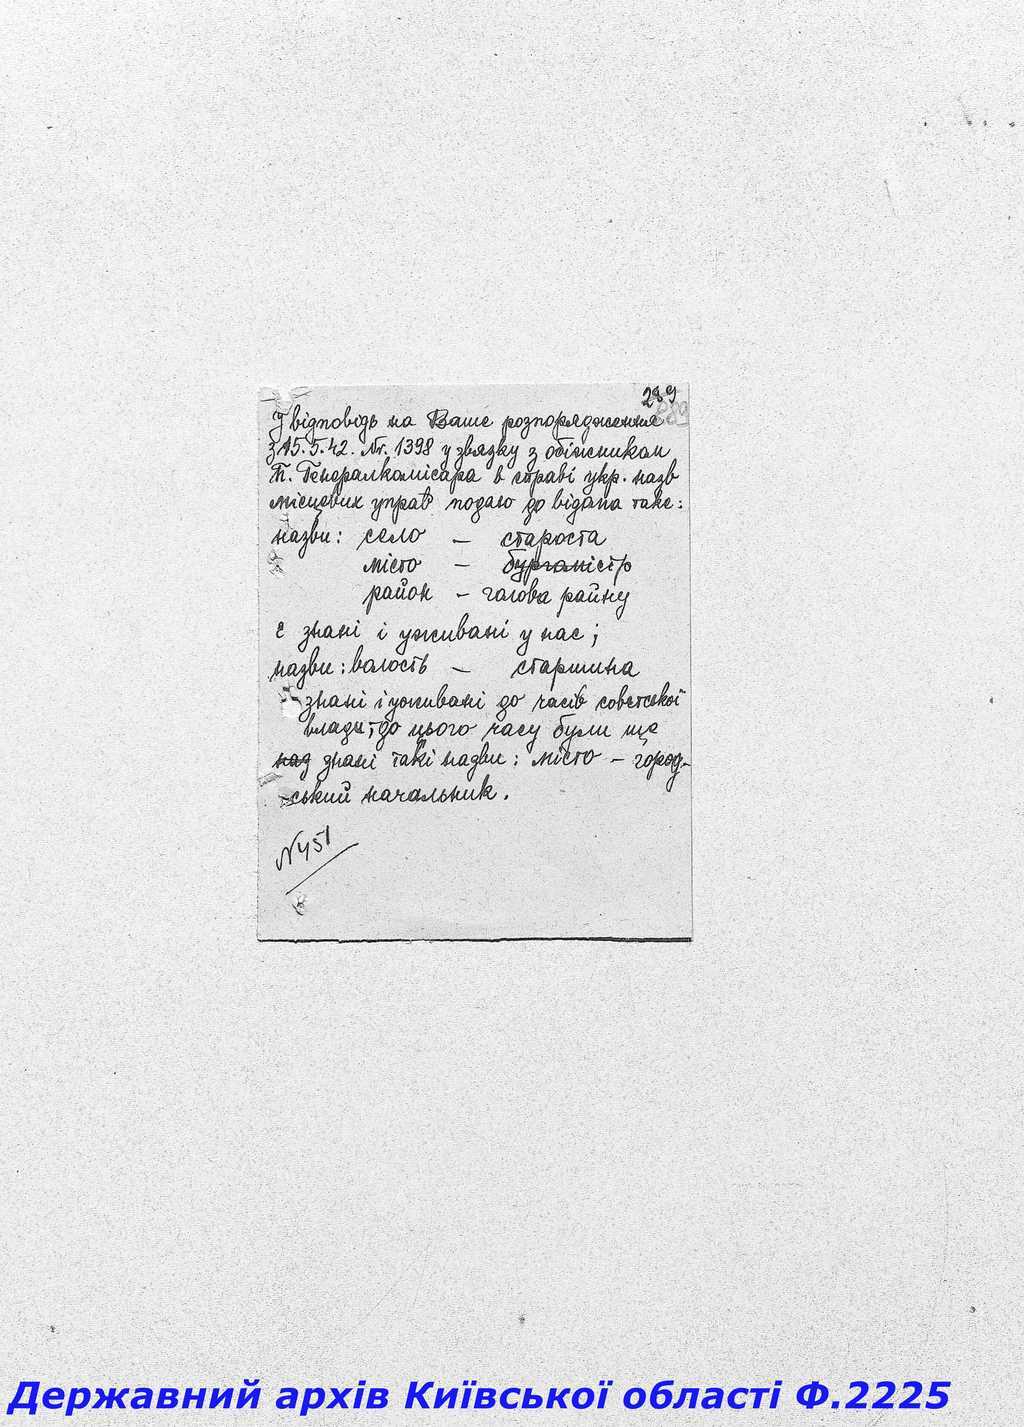 289
У відповідь на Ваше розпорядження
з 15.5.42. Nr. 1398 у звязку з обіжником
П. Генералкомісара в справі укр. назв
місцевих управ подаю до відома таке:
назви: село — староста
місто — бургомістр
район — голова райну
є знані і уживані у нас;
назви: волость — старшина
знані і уживані до часів советської
влади, до цього часу були ще
над знані такі назви: місто — город-
-ський начальник.
N 451
Державний архів Київської області Ф.2225